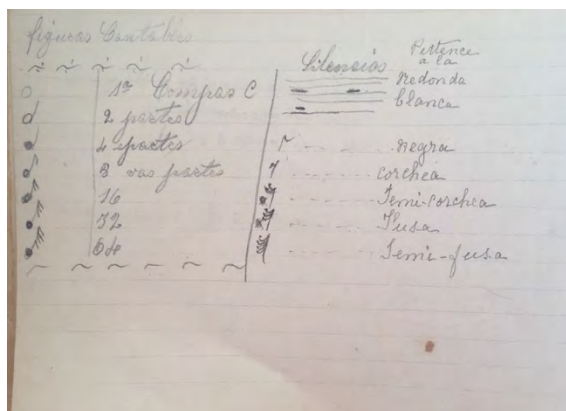 figuras Contables
1ª Compas C
2 partes
4 partes
8 vas partes
16
32
64
Silencios
Pertence
a la
Redonda
blanca
negra
corchea
Semi-corchea
Fusa
Semi-fusa